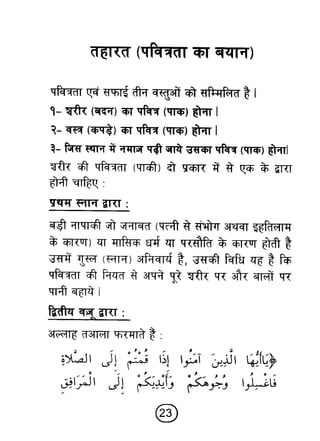 तहारत (पवित्रता का बयान)
पवित्रता एवं सफाई तीन वस्तुओं को सम्मिलित है ।
१- शरीर (बदन) का पवित्र (पाक) होना ।
२- वस्त्र (कपड़े) का पवित्र (पाक) होना ।
३- जिस स्थान में नमाज़ पढ़ी जाये उसका पवित्र (पाक) होना।
शरीर की पवित्रता (पाकी) दो प्रकार में से एक के द्वारा
होनी चाहिए :
प्रथम स्नान द्वारा :
बड़ी नापाकी जो जनाबत (पत्नी से संभोग अथवा इहतिलाम
के कारण) या मासिक धर्म या परसौति के कारण होती है
उसमें गुस्ल (स्नान) अनिवार्य है, उसकी विधि यह है कि
पवित्रता की नियत से अपने पूरे शरीर पर और बालों पर
पानी बहाये ।
द्वितीय वज़ू द्वारा :
अल्लाह तआला फरमाते हैं :
﴿يَاأَيُّهَا الَّذِينَ آمَنُوا إِذَا قُمْتُمْ إِلَى الصَّلَاةِ
فَاغْسِلُوا وُجُوهَكُمْ وَأَيْدِيَكُمْ إِلَى الْمَرَافِقِ
23